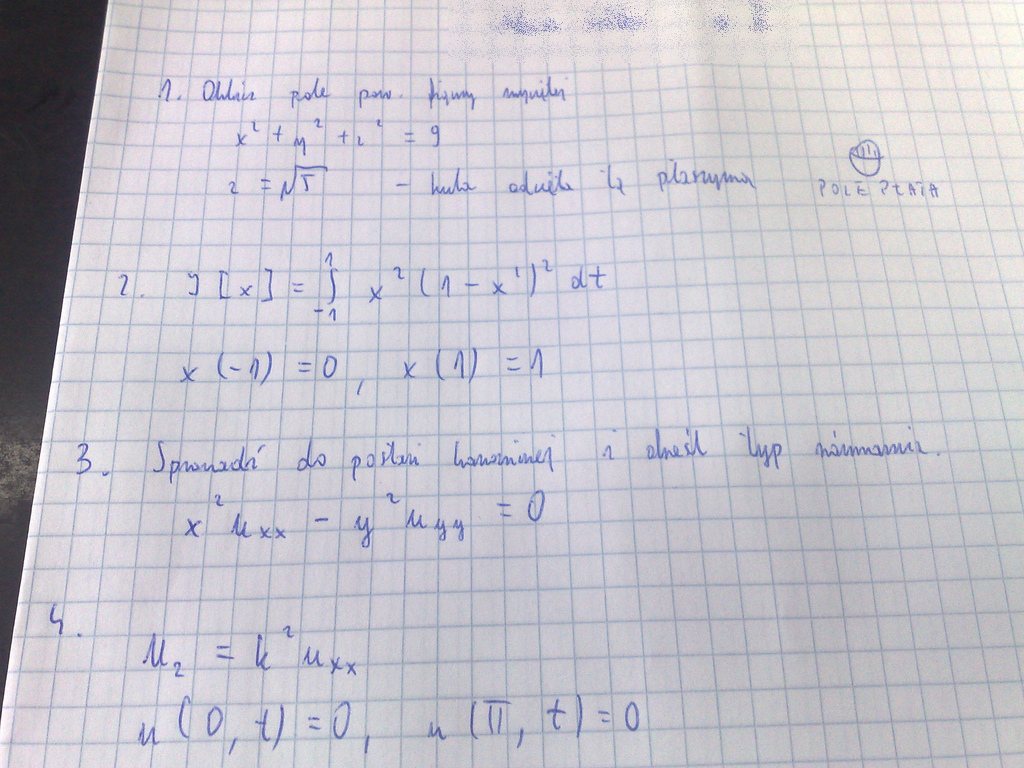 1. Oblicz pole pow. figury wyciętej
x² + y² + z² = 9
z = √5 – kula odcięta tą płaszczyzną
POLE PŁATA
2. J[x] = ∫₋₁¹ x² (1 - x')² dt
x(-1) = 0, x(1) = 1
3. Sprowadź do postaci kanonicznej i określ typ równania.
x² uₓₓ - y² u_yy = 0
4.
u₂ = k² uₓₓ
u(0, t) = 0, u(π, t) = 0